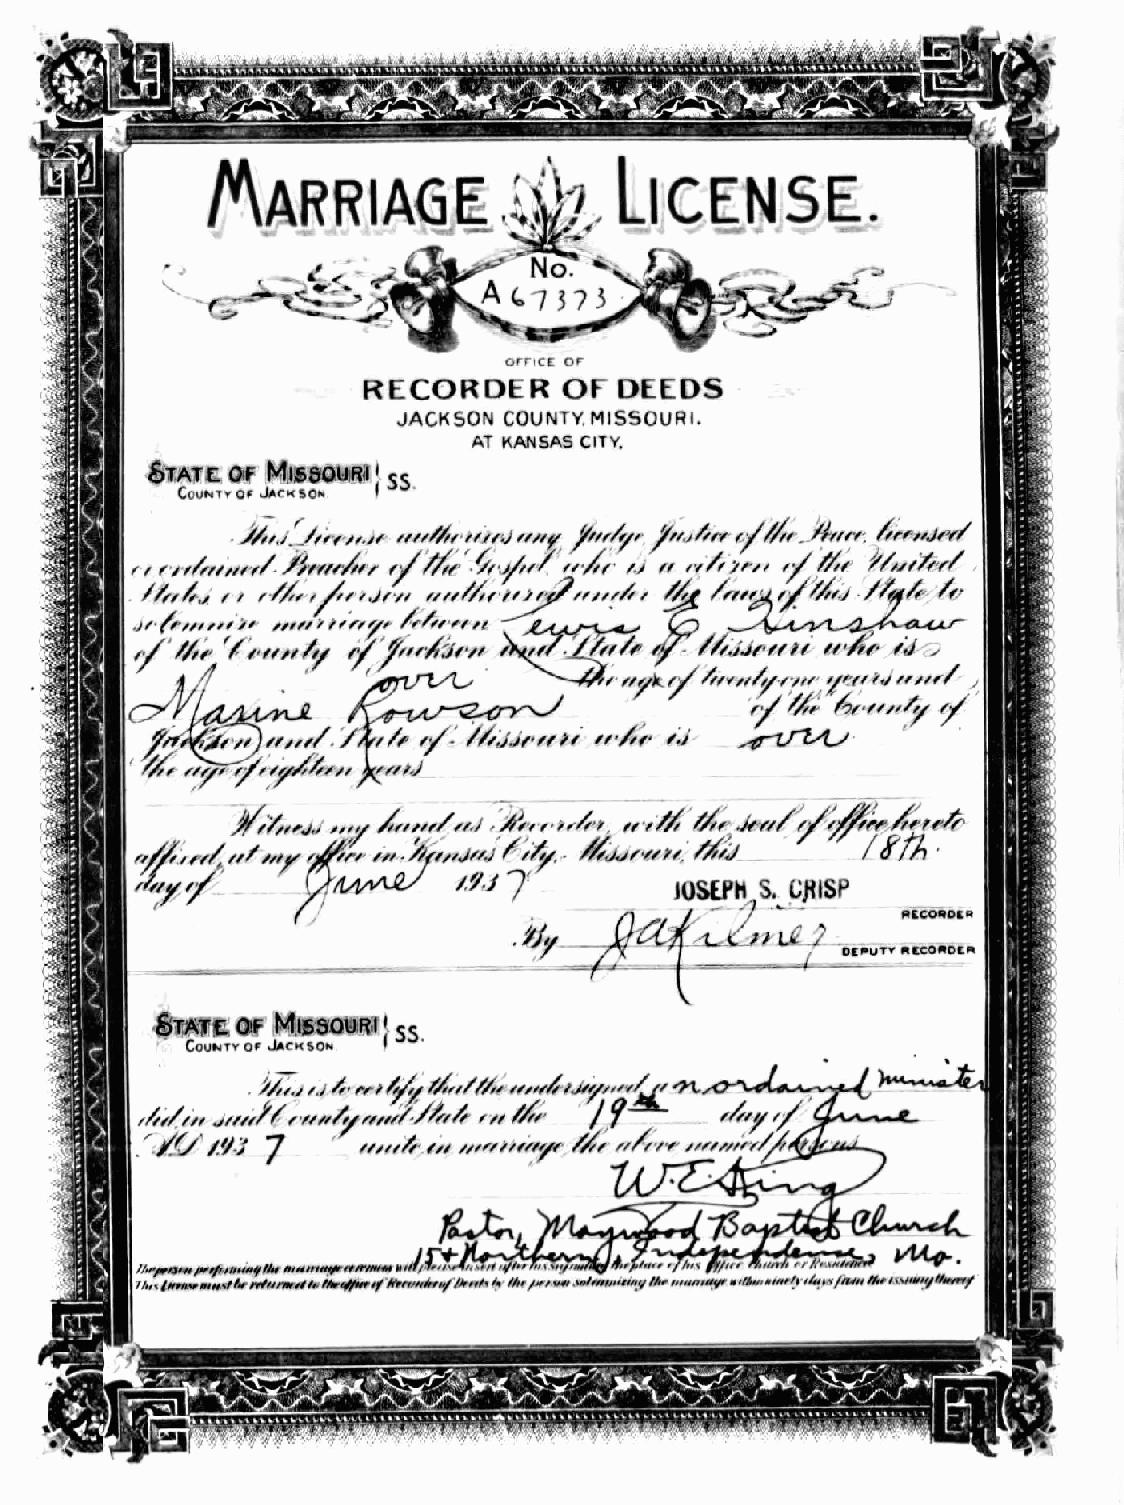 MARRIAGE LICENSE.
No.
A 67373
OFFICE OF
RECORDER OF DEEDS
JACKSON COUNTY, MISSOURI.
AT KANSAS CITY.
STATE OF MISSOURI
COUNTY OF JACKSON } SS.
This License authorizes any Judge, Justice of the Peace, licensed
or ordained Preacher of the Gospel, who is a citizen of the United
States, or other person authorized under the laws of this State, to
solemnize marriage between Lewis E Hinshaw
of the County of Jackson and State of Missouri who is
over the age of twenty one years and
Maxine Rowson of the County of
Jackson and State of Missouri who is over
the age of eighteen years
Witness my hand as Recorder, with the seal of office hereto
affixed, at my office in Kansas City, Missouri, this 18th.
day of June 1937
JOSEPH S. CRISP
RECORDER
By J A Kilmer
DEPUTY RECORDER
STATE OF MISSOURI
COUNTY OF JACKSON } SS.
This is to certify that the undersigned, an ordained minister
did in said County and State on the 19th day of June
A.D. 1937 unite in marriage the above named persons
W.E.
Pastor, Maywood Baptist Church
15 & Northern, Independense, Mo.
The person performing the marriage ceremony will please insert after his signature the place of his Office Church or Residence
This License must be returned to the office of Recorder of Deeds by the person solemnizing the marriage within ninety days from the issuing thereof